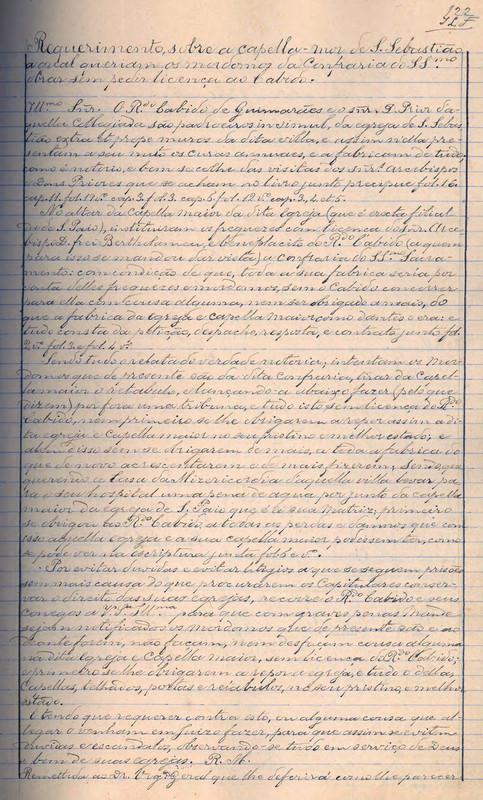 122
Requerimento, sobre a capella-mor de S. Sebastião
a qual queriam os mordomos da Confraria do SS.mo
obrar sem pedir licença ao Cabido.
Ill.mo Snr. O R.do Cabido de Guimarães e o snr. D. Prior da-
quella Collegiada são padroeiros in simul, da egreja de S. Sebas-
tião extra et prope muros da dita villa, e assim n'ella pre-
sentam a seu muto os curas annuaes, e a fabricam de tudo,
como é notorio, e bem se colhe das visitas dos snr.s Arcebispos
e Dons Priores que se acham no livro junto precipue fol. 16.
cap. 11. fol. 17 v.º cap. 3. fol. 3. cap. 6. fol. 12 v.º cap. 3, 4 et 5.
No altar da Capella maior da dita Egreja (que é erecta
de S. Paio), instituiram os freguezes com licença do snr. Arce-
bispo D. frei Bertholameu, e beneplacito do R.do Cabido (a quem
para isso se mandou dar vista) a Confraria do SS.mo Sacra-
mento: com condição de que, toda a sua fabrica seria por
conta d'elles freguezes e mordomos, sem o Cabido concorrer
para ella com cousa alguma, nem ser obrigado a mais, do
que a fabrica da egreja e capella maior como dantes o era: e
tudo consta da petição, despacho, resposta, e contracto junto fol.
2 v.º fol. 3. e fol. 4 v.º
Sendo tudo o relatado verdade notoria, intentam os Mor-
domos que de presente são da dita confraria, tirar da Capel-
la maior o retabulo, e lançando-a abaixo fazer (pelo que
dizem) por fora uma tribuna, e tudo isto sem licença do R.do
Cabido, nem primeiro se lhe obrigarem a repor assim a di-
ta egreja e Capella maior no seu pristino e melhor estado; e
alem d'isso sem se obrigarem de mais, a toda a fabrica do
que de novo acrescentarem e de mais fizerem. Sendo que
querendo a Casa da Mizericordia daquella villa levar pa-
ra o seu hospital uma penna de agua por junto da capella
maior da egreja de S. Paio que é la sua Matriz; primeiro
se obrigou ao R.do Cabido, a todas as perdas e damnos que com
isso aquella Egreja e a sua capella maior podessem ter, como
se pode ver na escriptura junta fol. 6 e v.º
Por evitar duvidas e evitar litigios a que se seguem, prisões
sem mais causa do que procurarem os Capitulares conser-
var o direito das suas egrejas, recorre o R.do Cabido e seus
conegos a V. S. Ill.ma para que com graves penas mande
sejam notificados os mordomos que de presente são e ao
deante forem, não façam, nem desfaçam cousa alguma
na dita Egreja e Capella maior, sem licença do R.do Cabido;
e primeiro se lhe obrigarem a repor a egreja, e tudo o d'ella,
Capellas, telhados, portas e retabulos, no seu pristino, e melhor
estado.
E tendo que requerer contra isto, ou alguma cousa que al-
legar o venham em juizo fazer, para que assim se evitem
duvidas e escandalos, observando-se tudo em serviço de Deus
e bem de suas egrejas. R. M.
Remettida ao Dr. Vig.ro Geral que lhe deferirá como lhe parecer